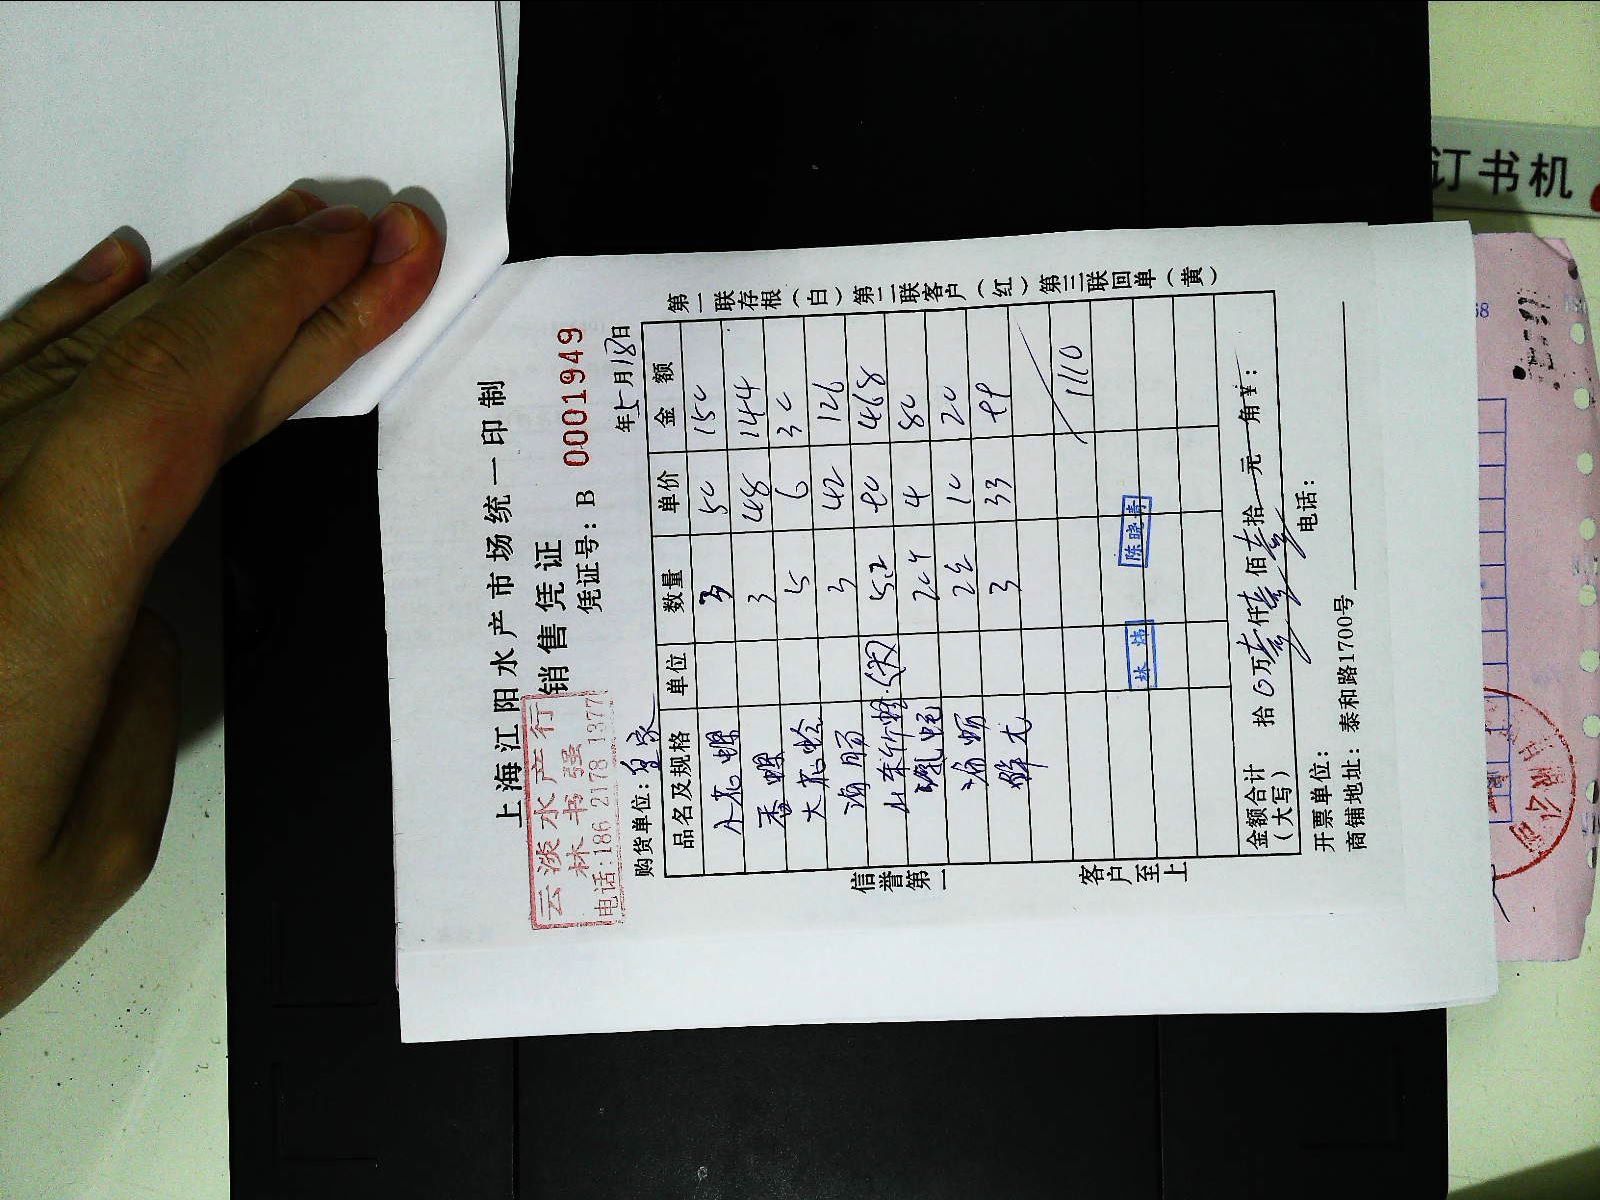 上海江阳水产市场统一印制
销售凭证
云淡水产行
林书强
电话:186 2178 1377
凭证号：B 0001949
购货单位:
年5月18日
品名及规格 单位 数量 单价 金额
小花螺 3 50 150
香螺 3 48 144
大花蛤 5 6 30
海肠 3 42 126
468
204 4 80
海蛎 10 20
3 33 99
1110
林炜
陈晓青
金额合计
（大写）
拾0万壹仟壹佰壹拾一元一角¥：
开票单位：
电话：
商铺地址：泰和路1700号
第一联存根（白）第二联客户（红）第三联回单（黄）
信誉第一
客户至上
订书机